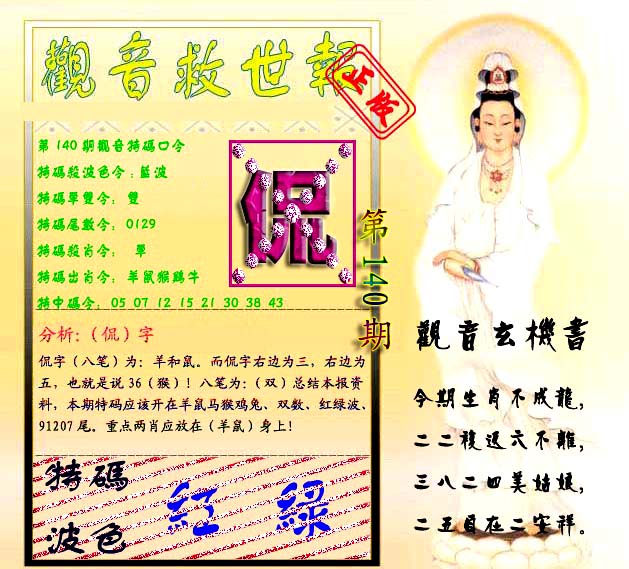 觀音救世報
正版
第140期觀音特碼口令
特碼殺波色令：藍波
特碼單雙令： 雙
特碼尾數令： 0129
特碼殺肖令： 單
特碼出肖令： 羊鼠猴鷄牛
特中碼令： 05 07 12 15 21 30 38 43
侃
第140期
分析:（侃）字
侃字（八笔）为：羊和鼠。而侃字右边为三，右边为
五，也就是说 36（猴）！八笔为：（双）总结本报资
料，本期特码应该开在羊鼠马猴鸡兔、双数、红绿波、
91207 尾。重点两肖应放在（羊鼠）身上！
特碼
波色
紅 綠
觀音玄機書
今期生肖不成龍，
二二複退六不離，
三八二四美姑娘，
二五自在二安祥。